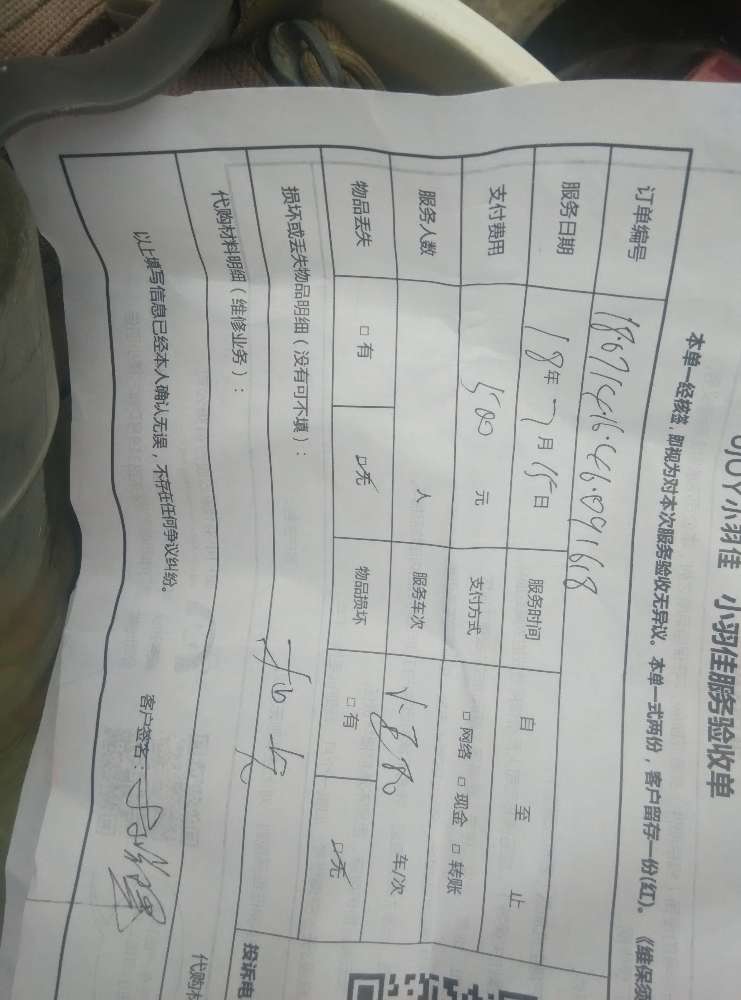 UJOY小羽佳 小羽佳服务验收单
本单一经核签，即视为对本次服务验收无异议。本单一式两份，客户留存一份(红)。《维保须
订单编号
服务日期 18年7月15日 服务时间 自 至 止
支付费用 500 元 支付方式 □网络 □现金 □转账
服务人数 人 服务车次 车/次
物品丢失 □有 ☑无 物品损坏 □有 ☑无
损坏或丢失物品明细（没有可不填）：
代购材料明细（维修业务）：
以上填写信息已经本人确认无误，不存在任何争议纠纷。 客户签名：
投诉电
代购材